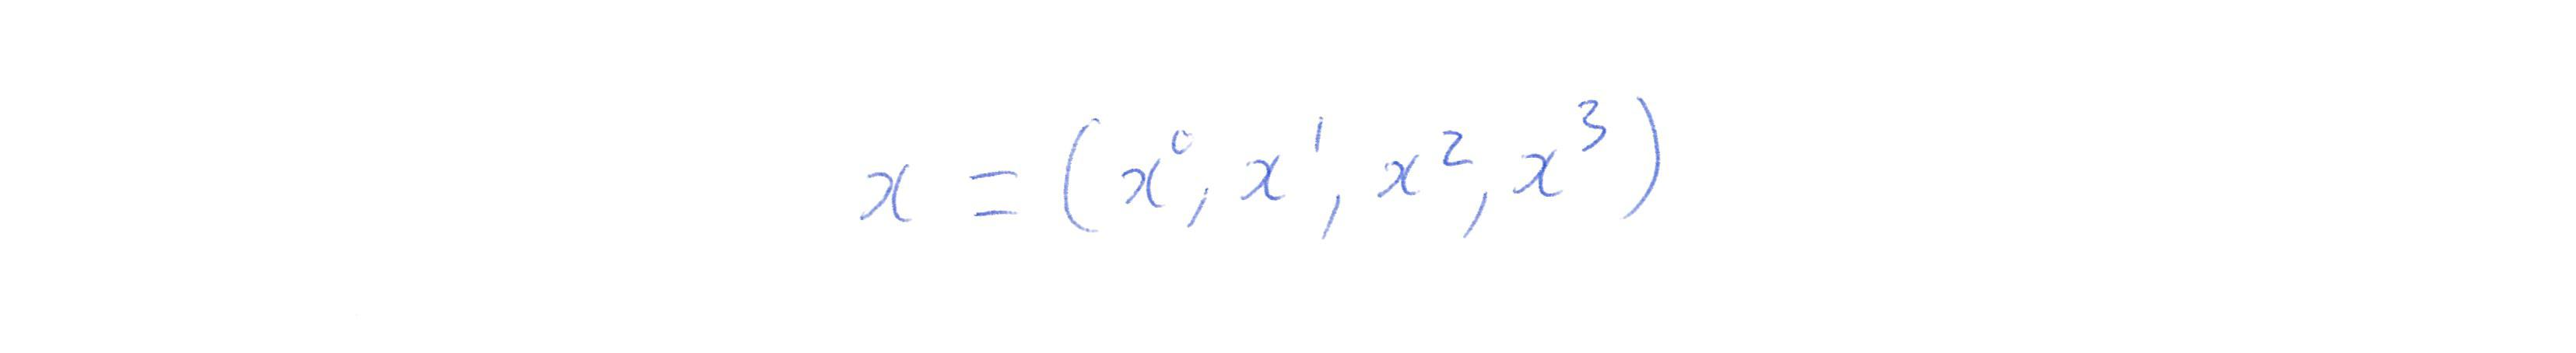 x = (x⁰, x¹, x², x³)